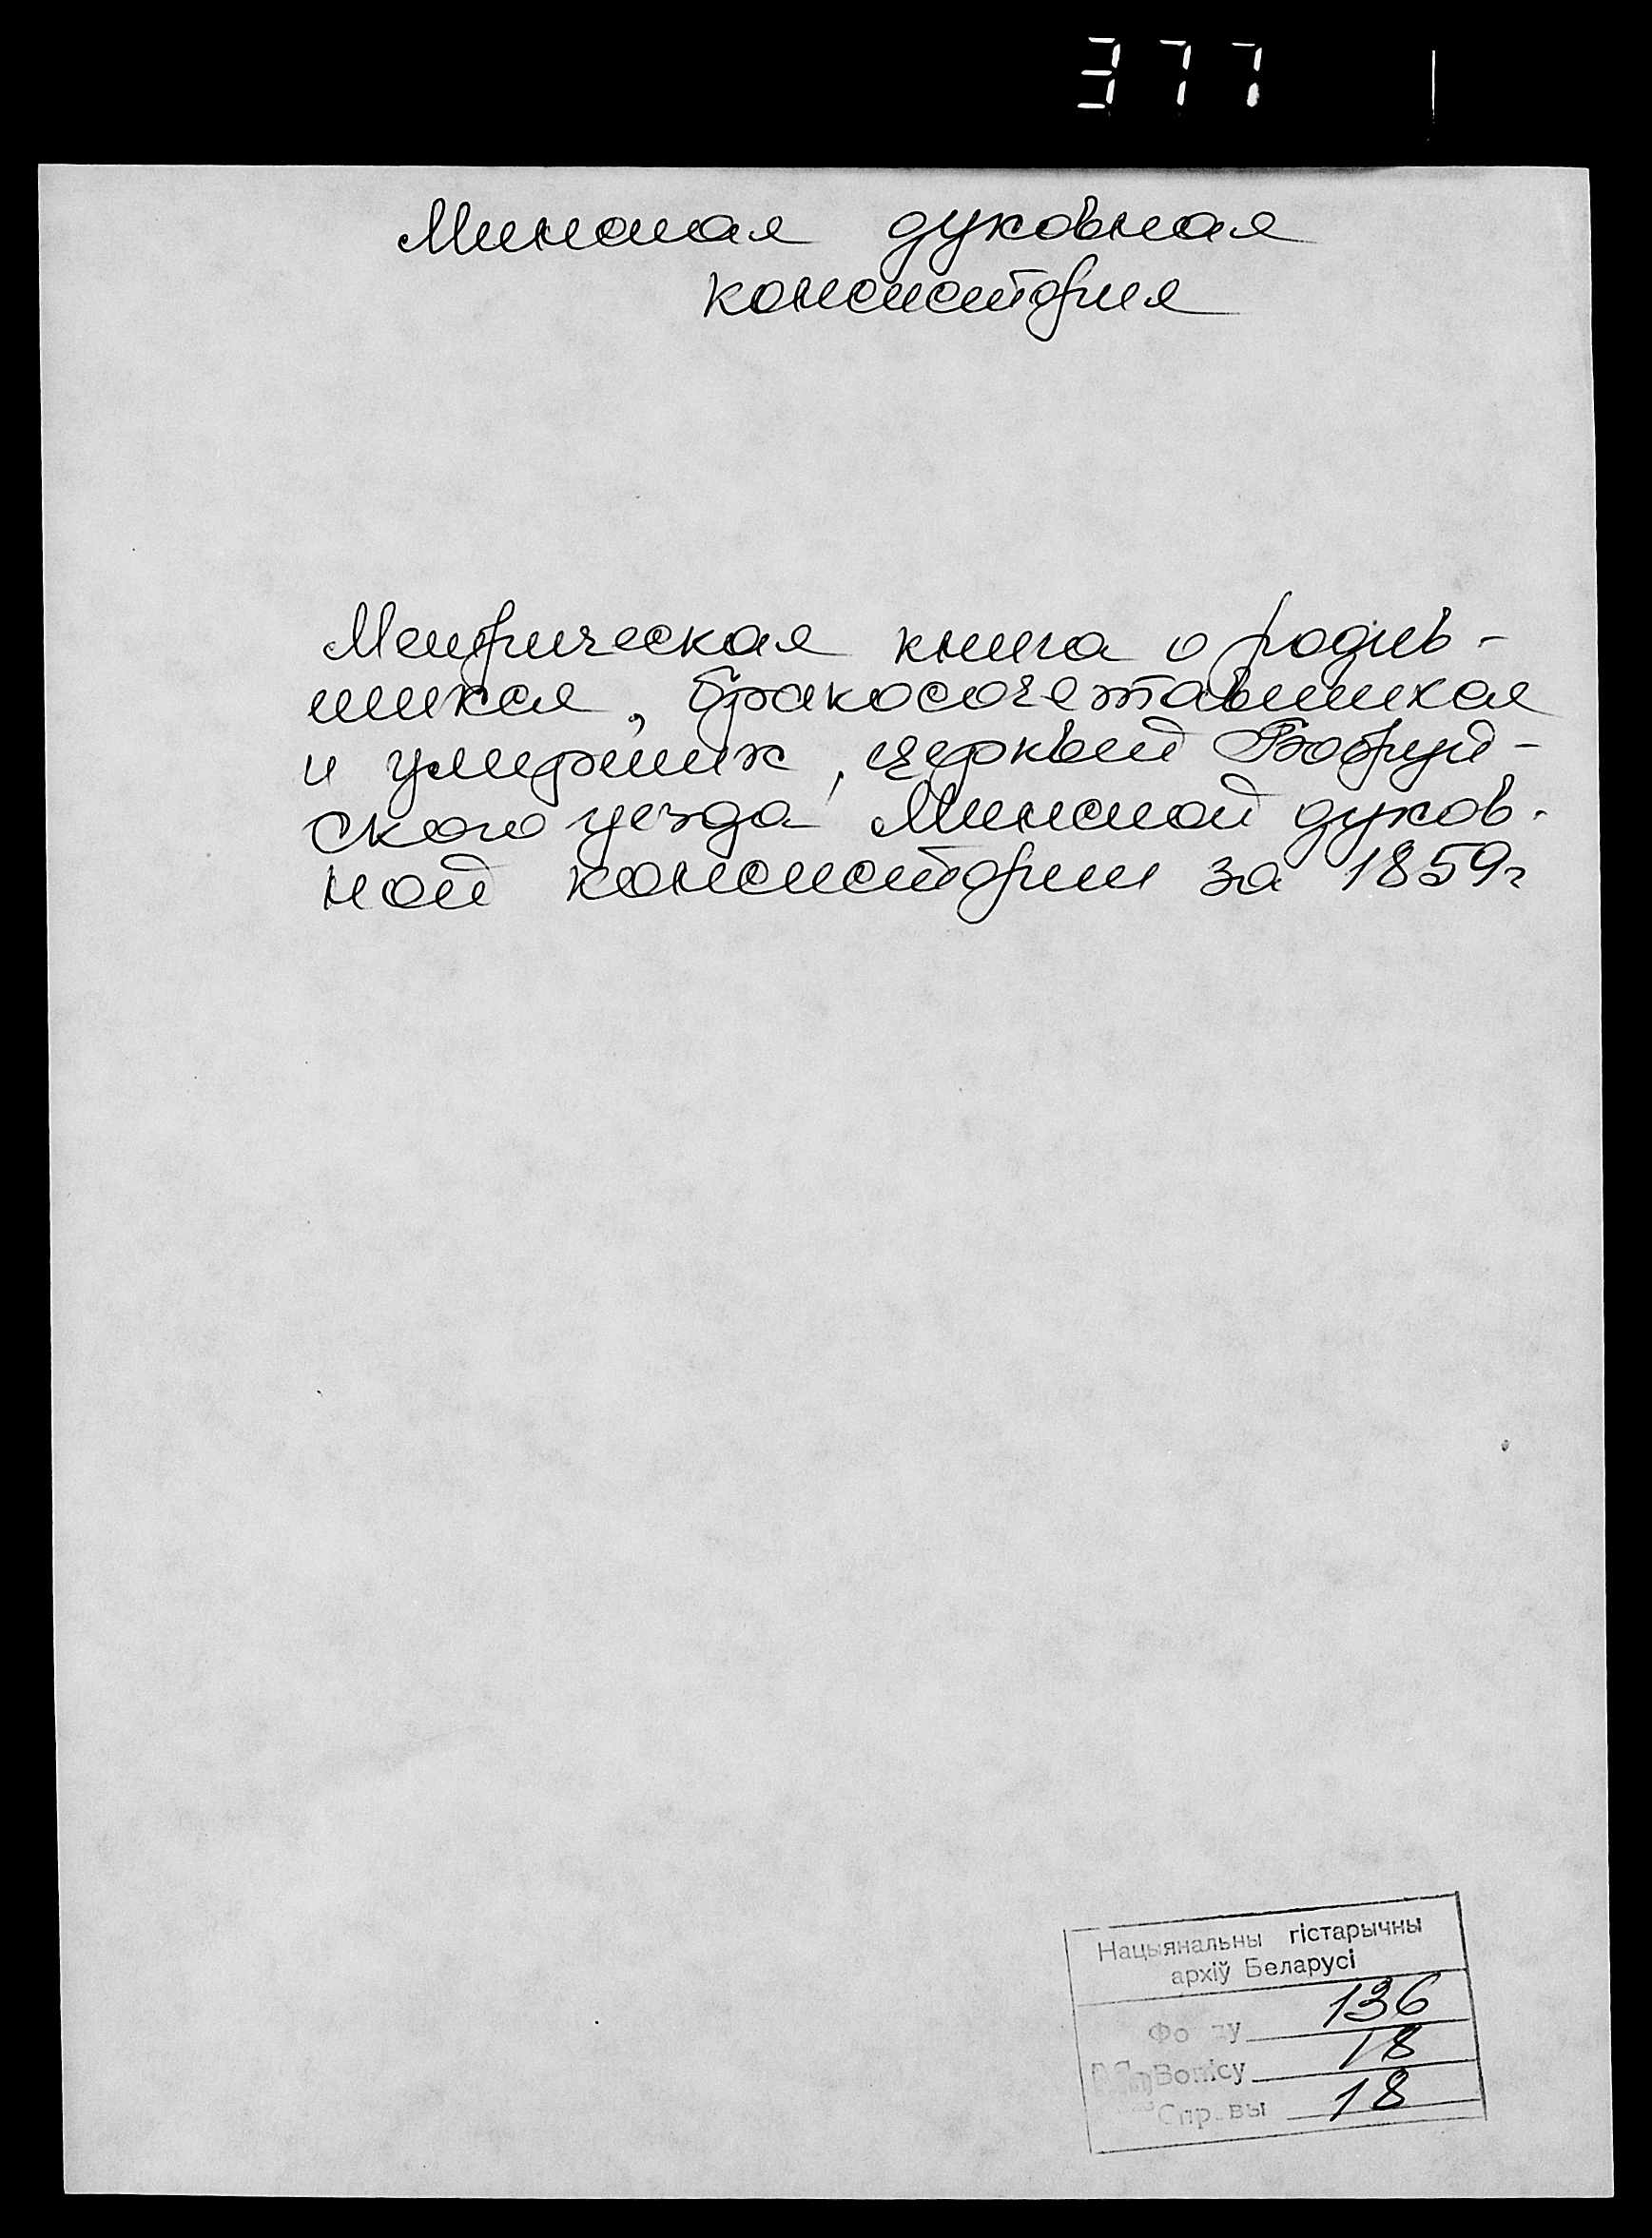 377
Минская духовная
консистория
Метрическая книга о родив-
шихся, бракосочетавшихся
и умерших, церквей Бобруй-
ского уезда Минской духов-
ной консистории за 1859г
Нацыянальны гістарычны
архіў Беларусі
Фонду 136
Вопісу 18
Справы 18